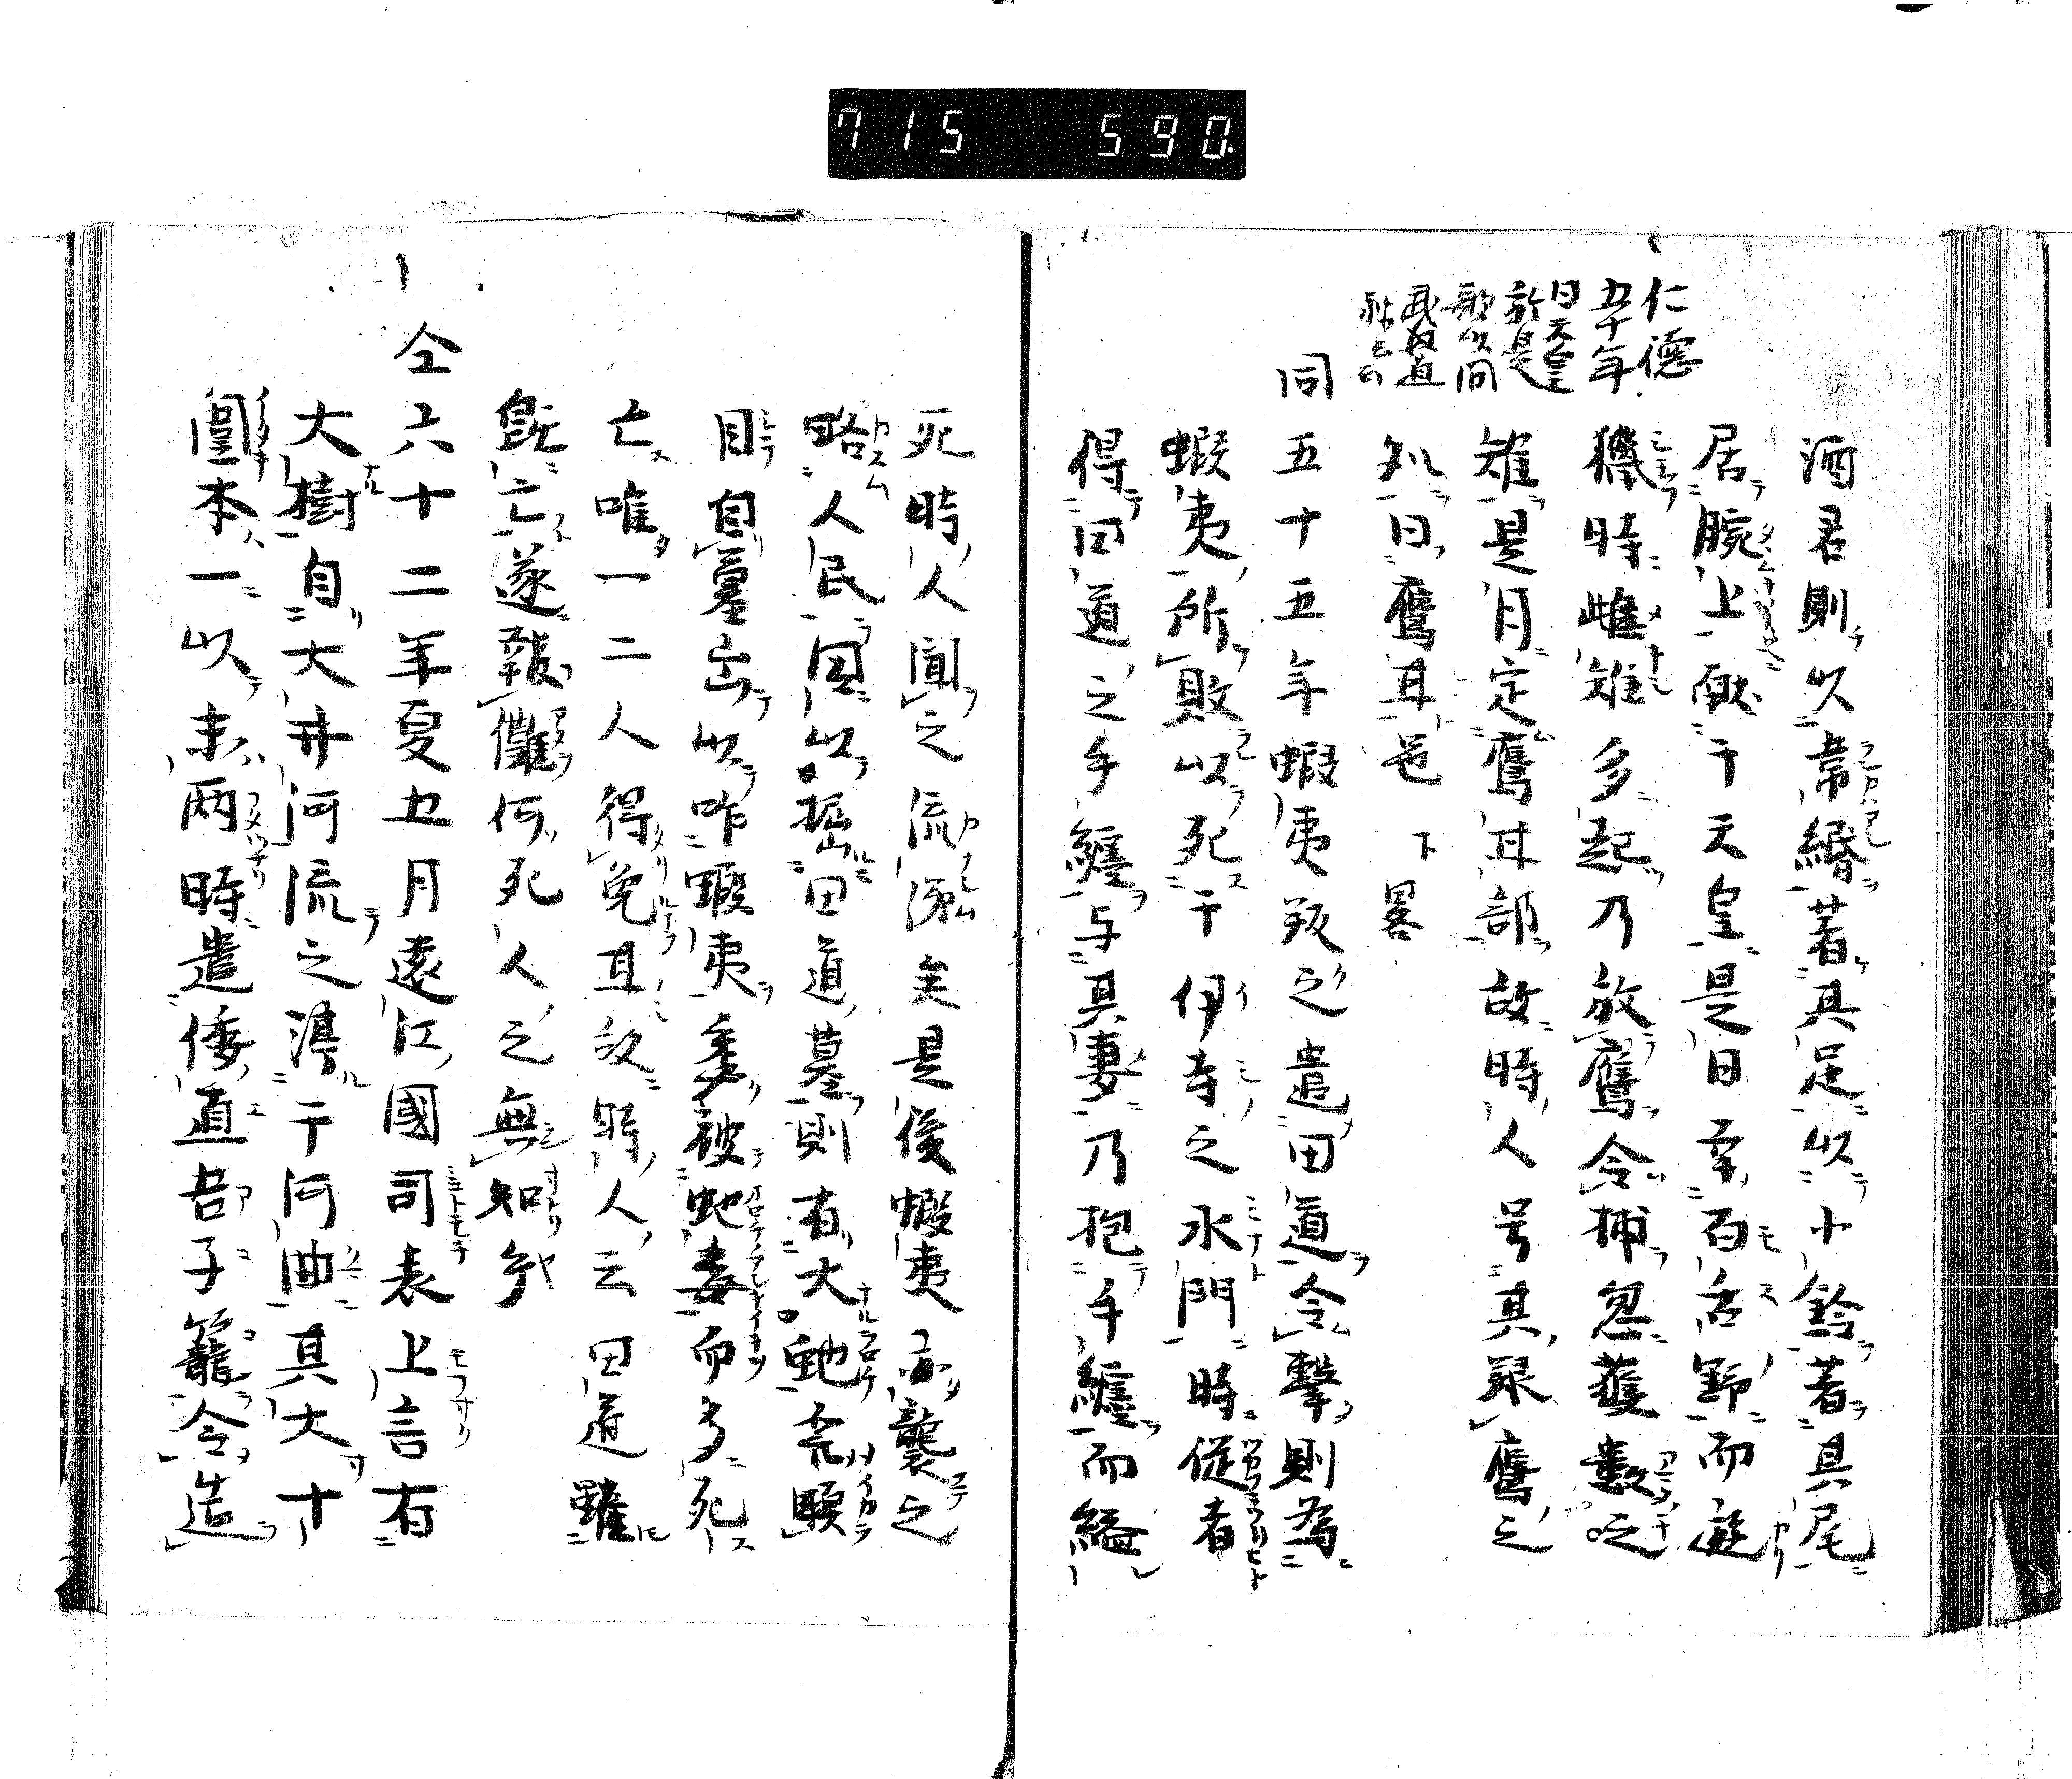 715 590.
酒君則以韋緡著其足以小鈴著其尾
居腕上献于天皇是日幸百舌野而遊
獵時雌雉多起乃放鷹令捕忽獲數〻
雉是月定鷹甘部故時人号其㱕鷹之
処曰鷹甘邑 下畧
五十五年蝦夷叛之遣田道令擊則為
蝦夷所敗以死于伊寺之水門時従者
得田道之手纏与其妻乃抱手纏而縊
仁德
五十年
曰天皇
於是
歌以問
武内宿
祢云々
同
死時人聞之流涕矣是後蝦夷亦襲之
略人民因以掘田道墓則有大虵発瞋
目自墓出以咋蝦夷悉被虵毒而多死
亡唯一二人得免耳故時人云田道雖
既亡遂報讎何死人之無知乎
仝六十二年夏五月遠江國司表上言有
大樹自大井河流之渟于河曲其大十
圍本一以末兩時遣倭直吾子籠令造